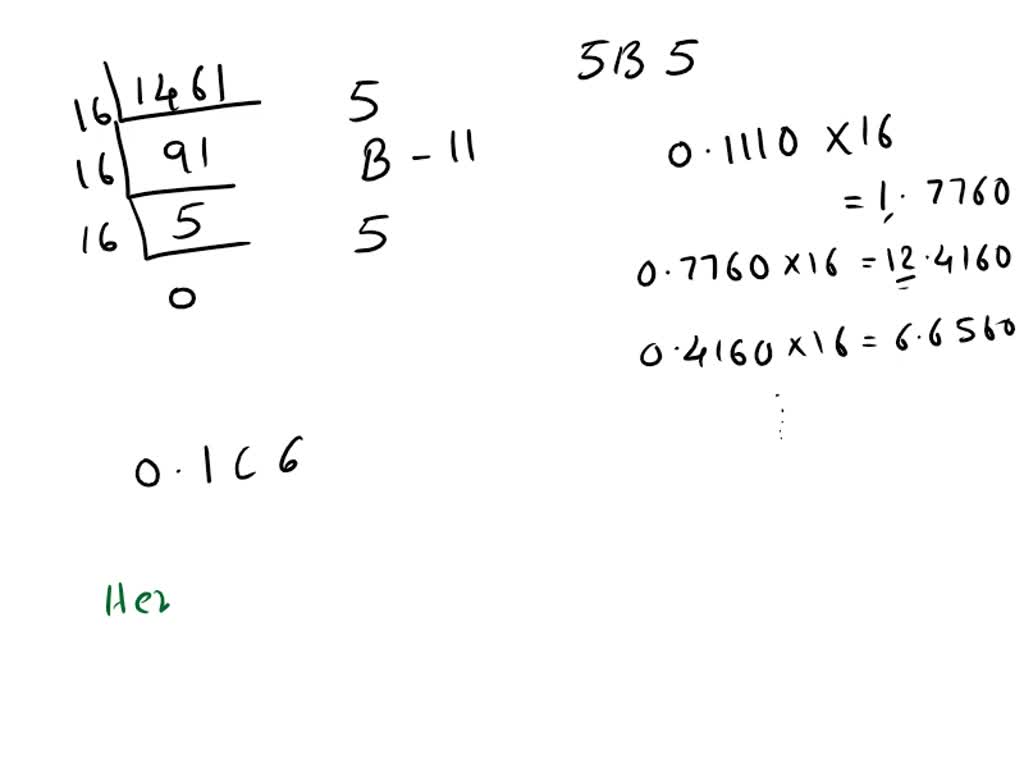 16 1461 5
16 91 B - 11
16 5 5
0
5B 5
0.1110 X 16
= 1.7760
0.7760 x 16 = 12.4160
0.4160 x 16 = 6.6560
0.1C6
Hex